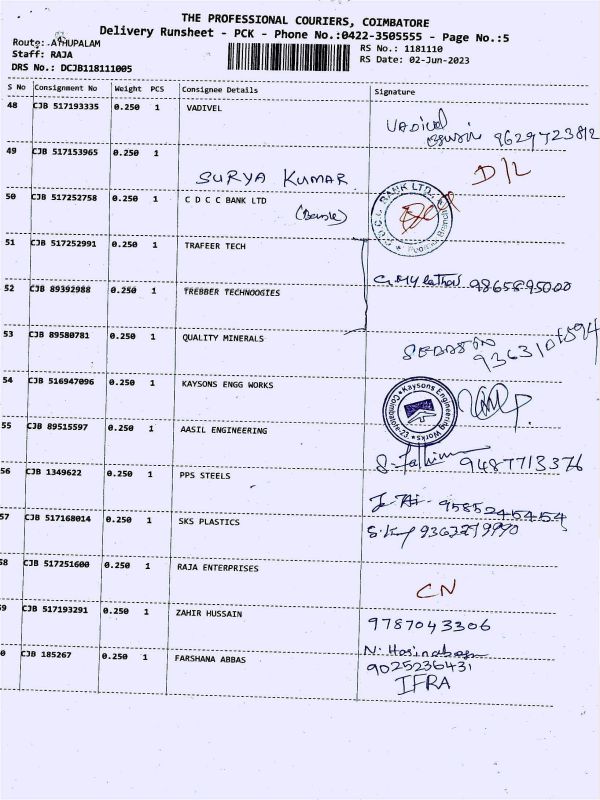 THE PROFESSIONAL COURIERS, COIMBATORE
Delivery Runsheet - PCK - Phone No.:0422-3505555 - Page No.:5
Route: ATHUPALAM
RS No.: 1181110
Staff: RAJA
RS Date: 02-Jun-2023
DRS No.: DCJB118111005
S No Consignment No Weight PCS Consignee Details Signature
48 CJB 517193335 0.250 1 VADIVEL
VADIVEL 9629723812
49 CJB 517153965 0.250 1
SURYA KUMAR D/L
50 CJB 517252758 0.250 1 C D C C BANK LTD
51 CJB 517252991 0.250 1 TRAFEER TECH
52 CJB 89392988 0.250 1 TREBBER TECHNOOGIES
9865895000
53 CJB 89580781 0.250 1 QUALITY MINERALS
54 CJB 516947096 0.250 1 KAYSONS ENGG WORKS
Kaysons Engineering Works Coimbatore-23
55 CJB 89515597 0.250 1 AASIL ENGINEERING
9487713376
56 CJB 1349622 0.250 1 PPS STEELS
9585245454
57 CJB 517168014 0.250 1 SKS PLASTICS
9363279990
58 CJB 517251600 0.250 1 RAJA ENTERPRISES
CN
59 CJB 517193291 0.250 1 ZAHIR HUSSAIN
9787043306
0 CJB 185267 0.250 1 FARSHANA ABBAS
9025236431
IFRA